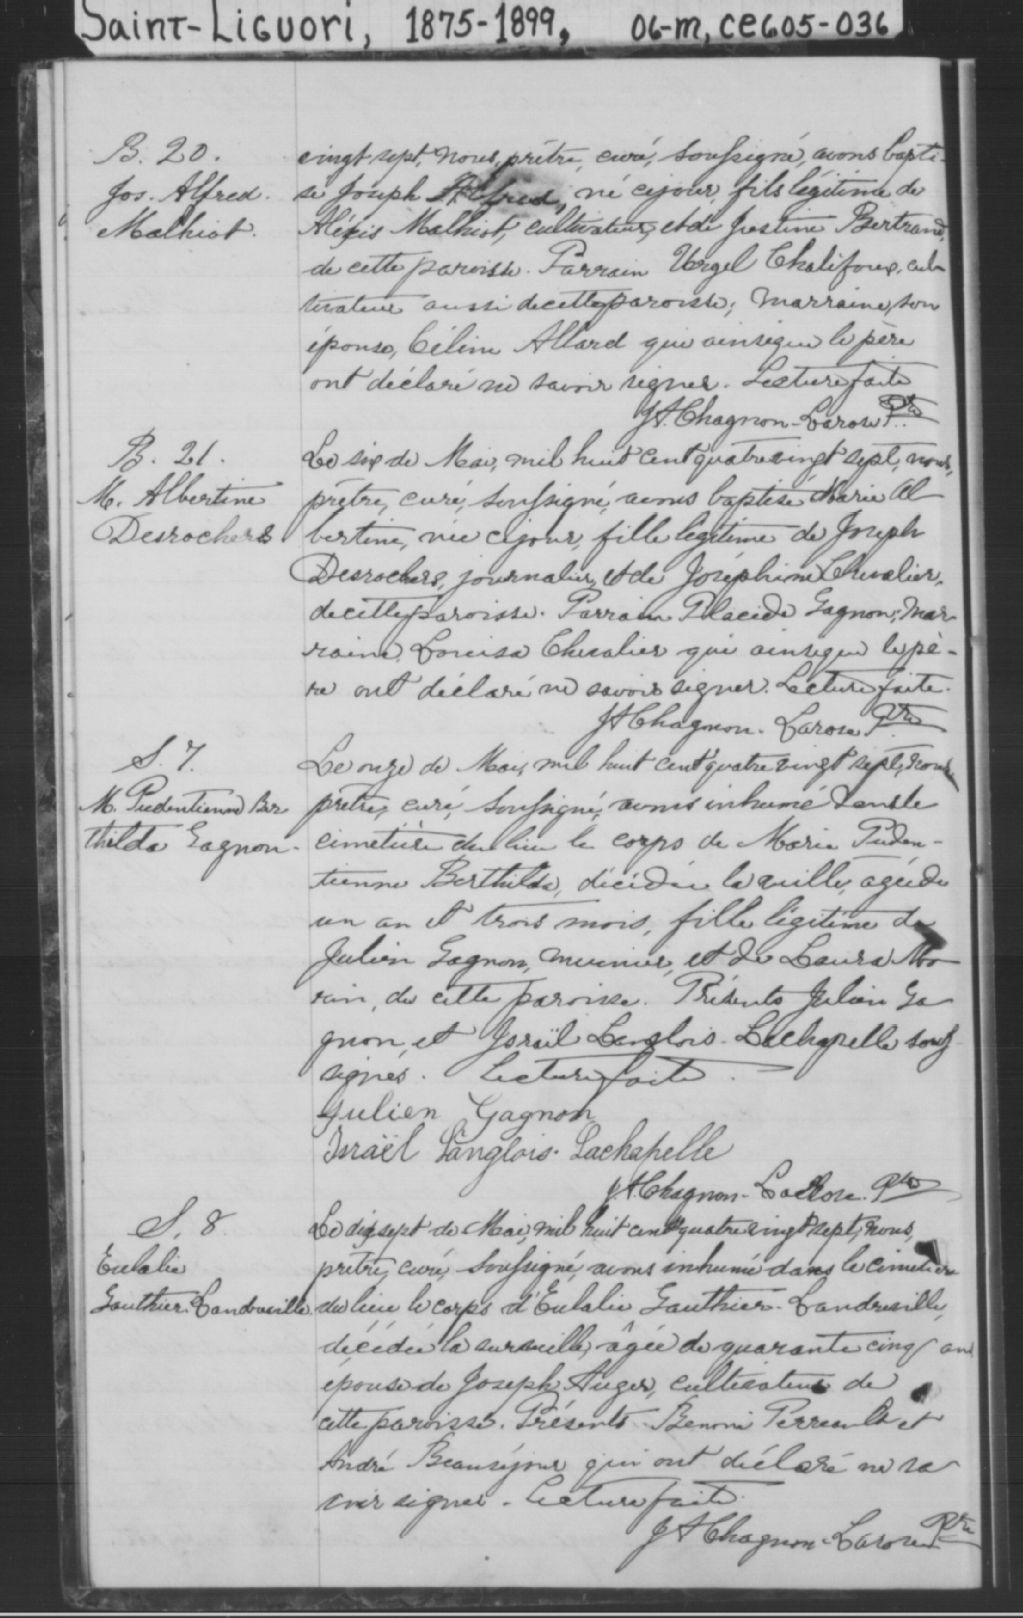 Saint-Liguori, 1875-1899, 06-m, CE605-036
B. 20.
Jos. Alfred.
Malhiot.
vingt sept, nous, prêtre, curé, soussigné, avons bapti-
sé Joseph Alfred, né ce jour, fils légitime de
Alexis Malhiot, cultivateur, et de Justine Bertrand,
de cette paroisse. Parrain Urgel Chalifoux, cul-
tivateur aussi de cette paroisse; marraine, son
épouse, Céline Allard qui ainsi que le père
ont déclaré ne savoir signer. Lecture faite
J A Chagnon-Larose Ptre
B. 21.
M. Albertine
Desrochers
Le six de Mai, mil huit cent quatre vingt sept, nous,
prêtre, curé, soussigné, avons baptisé Marie Al
bertine, née ce jour, fille légitime de Joseph
Desrochers, journalier, et de Joséphine Chevalier,
de cette paroisse. Parrain Placide Gagnon; mar-
raine, Louisa Chevalier qui ainsi que le pè-
re ont déclaré ne savoir signer. Lecture faite.
J A Chagnon-Larose Ptre
S. 7.
M. Pudentienne Ber
thilda Gagnon.
Le onze de Mai, mil huit cent quatre vingt sept, nous
prêtre, curé, soussigné, avons inhumé dans le
cimetière du lieu le corps de Marie Puden-
tienne Berthilda, décédée la veille, agée de
un an et trois mois, fille légitime de
Julien Gagnon, meunier, et de Laura Mo
rin, de cette paroisse. Présents Julien Ga
gnon, et Israïl Langlois-Lachapelle sous
signés. Lecture faite.
Julien Gagnon
Israël Langlois-Lachapelle
J A Chagnon-Larose Ptre
S. 8
Eulalie
Gauthier-Landreville
Le dix sept de Mai, mil huit cent quatre vingt sept, nous,
prêtre, curé, soussigné, avons inhumé dans le cimetière
du lieu le corps d'Eulalie Gauthier-Landreville,
décédée la surveille, âgée de quarante cinq ans
épouse de Joseph Auger, cultivateur de
cette paroisse. Présents Benoni Perreault et
André Beauséjour qui ont déclaré ne sa
voir signer. Lecture faite.
J A Chagnon-Larose Ptre